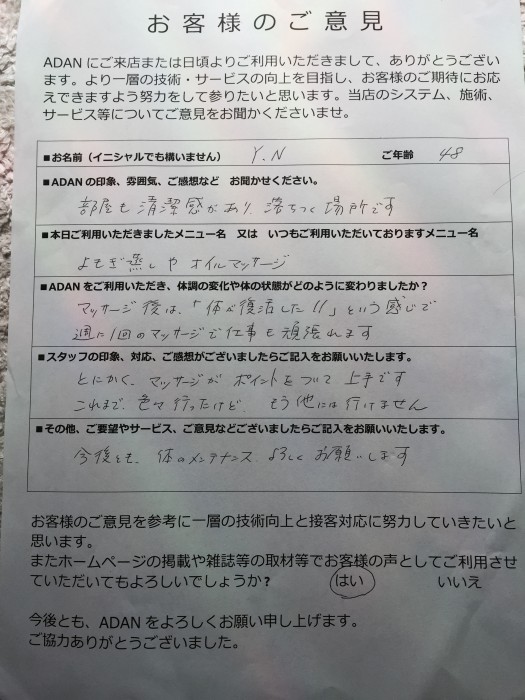 お客様のご意見
ADANにご来店または日頃よりご利用いただきまして、ありがとうござい
ます。より一層の技術・サービスの向上を目指し、お客様のご期待にお応
えできますよう努力をして参りたいと思います。当店のシステム、施術、
サービス等についてご意見をお聞かくださいませ。
■お名前(イニシャルでも構いません) Y.N ご年齢 48
■ADANの印象、雰囲気、ご感想など お聞かせください。
部屋も清潔感があり、落ちつく場所です
■本日ご利用いただきましたメニュー名 又は いつもご利用いただいておりますメニュー名
よもぎ蒸しや オイルマッサージ
■ADANをご利用いただき、体調の変化や体の状態がどのように変わりましたか?
マッサージ後は、「体が復活した!!」という感じで
週に1回のマッサージで仕事も頑張れます
■スタッフの印象、対応、ご感想がございましたらご記入をお願いいたします。
とにかく、マッサージが ポイントをついて 上手です
これまで、色々行ったけど、もう他には行けません
■その他、ご要望やサービス、ご意見などございましたらご記入をお願いいたします。
今後とも、体のメンテナンス よろしくお願いします
お客様のご意見を参考に一層の技術向上と接客対応に努力していきたいと
思います。
またホームページの掲載や雑誌等の取材等でお客様の声としてご利用させ
ていただいてもよろしいでしょうか? はい いいえ
今後とも、ADANをよろしくお願い申し上げます。
ご協力ありがとうございました。